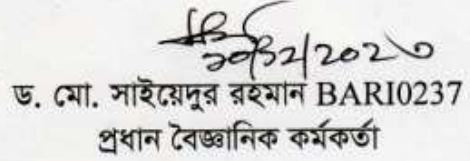 ড. মো. সাইয়েদুর রহমান BARI0237
প্রধান বৈজ্ঞানিক কর্মকর্তা